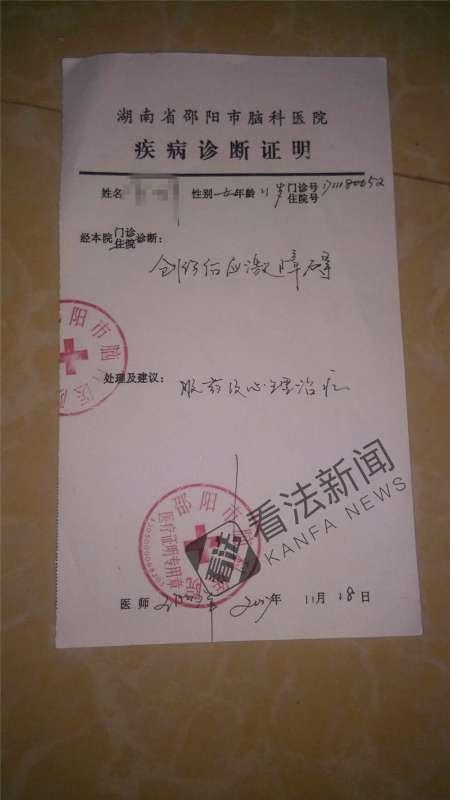 湖南省邵阳市脑科医院
疾病诊断证明
姓名 性别 女 年龄 11岁 门诊号 住院号 1711180052
经本院 门诊 住院 诊断：
创伤后应激障碍
处理及建议：服药及心理治疗
邵阳市脑科医院
邵阳市脑科医院
医疗证明专用章
看法
看法新闻
KANFA NEWS
医师 2017年 11月 18日